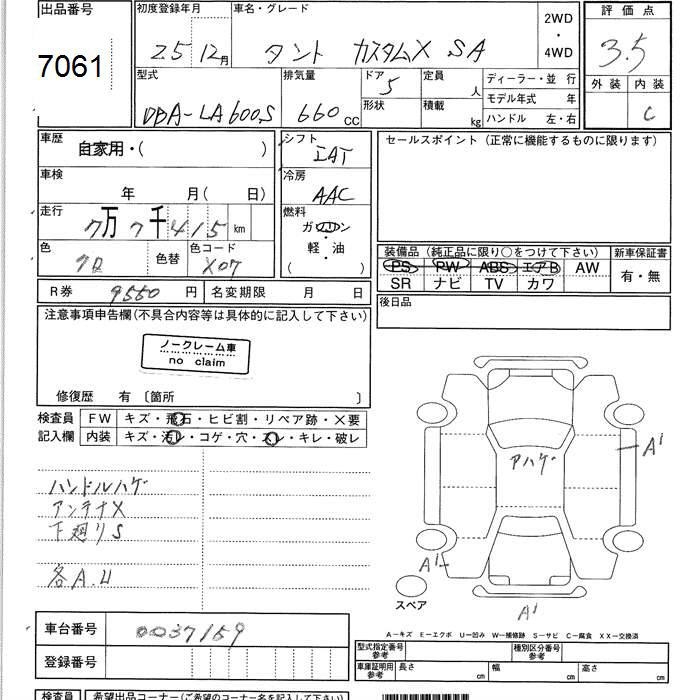 出品番号
7061
初度登録年月
25 12月
車名・グレード
タント カスタムX SA
2WD
・
4WD
評価点
3.5
外装 内装
C
型式
DBA-LA600S
排気量
660 CC
ドア
5
形状
定員
人
積載
kg
ディーラー・並 行
モデル年式 年
ハンドル 左・右
車歴
自家用・( )
シフト
IAT
セールスポイント (正常に機能するものに限ります)
車検
年 月( 日)
冷房
AAC
走行
7万7千415 km
燃料
ガソリン
・
軽・油
( )
色
クロ
色替
色コード
X07
装備品 (純正品に限り○をつけて下さい)
PS PW ABS エアB AW
SR ナビ TV カワ
新車保証書
有・無
R券 9550 円
名変期限 月 日
後日品
注意事項申告欄(不具合内容等は具体的に記入して下さい)
ノークレーム車
no claim
修復歴 有 〔箇所 〕
検査員
記入欄
FW キズ・飛石・ヒビ割・リペア跡・X要
内装 キズ・汚レ・コゲ・穴・スレ・キレ・破レ
ハンドルハゲ
アンテナX
下廻りS
各A.U
アハゲ
A1
A1
A1
スペア
車台番号 0037159
登録番号
A-キズ E-エクボ U-凹み W-補修跡 S-サビ C-腐食 XX-交換済
型式指定番号
参考
種別区分番号
参考
車庫証明用
参考
長さ cm 幅 cm 高さ cm
検査員 希望出品コーナー(ご希望のコーナー名を記入下さい)